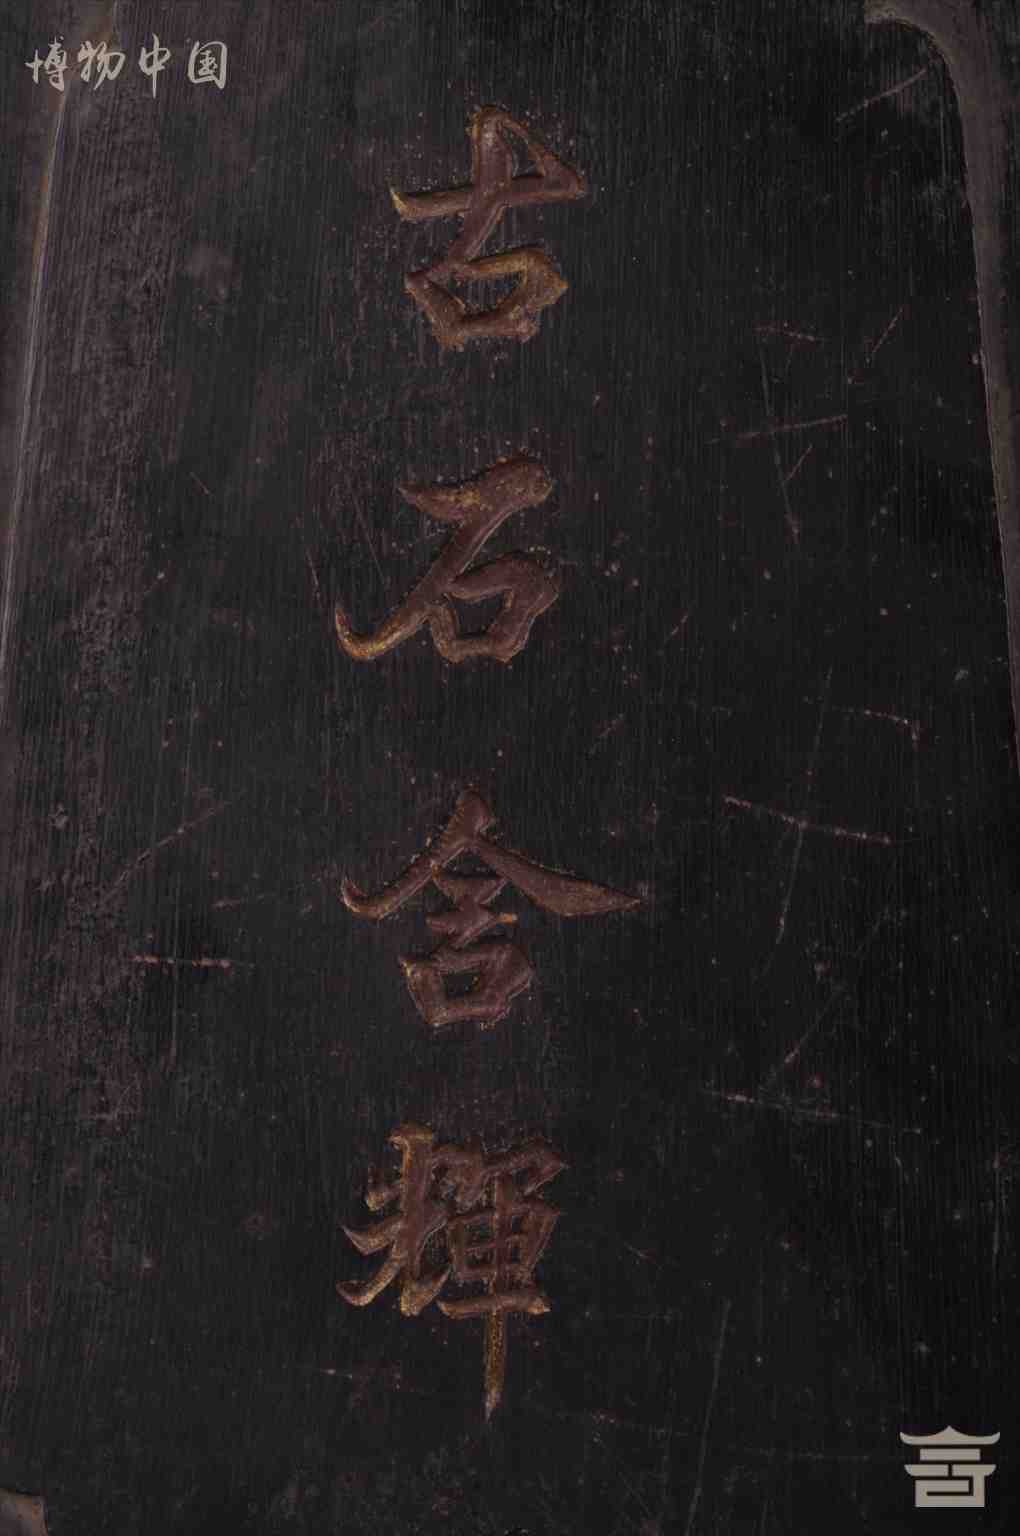 博物中国
古石含輝